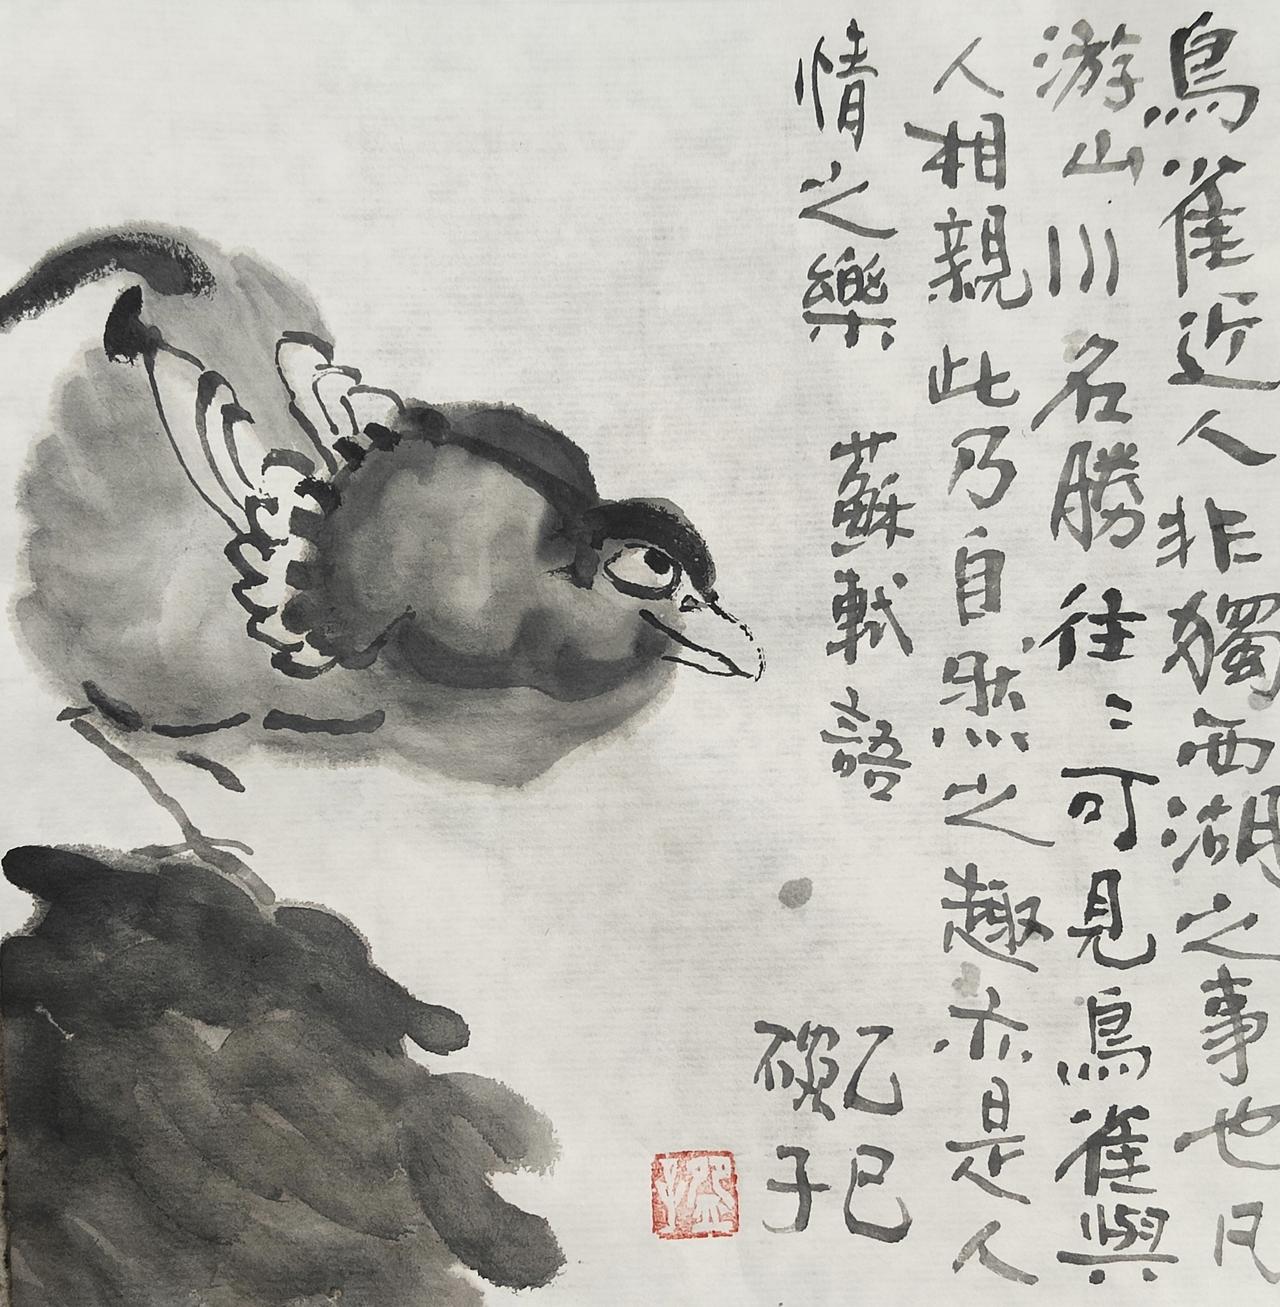 鳥雀近人非獨西湖之事也凡
游山川名勝往〻可見鳥雀與
人相親此乃自然之趣亦是人
情之樂 蘇軾語
乙巳
子